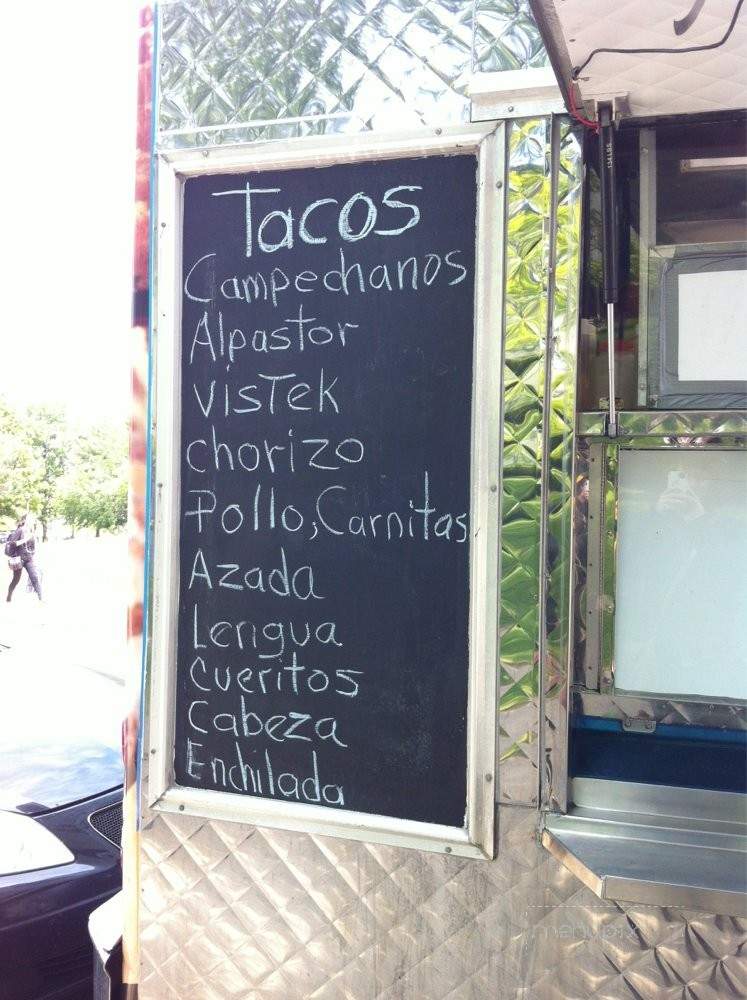 Tacos
Campechanos
Alpastor
visTek
chorizo
Pollo, Carnitas
Azada
Lengua
Cueritos
Cabeza
Enchilada
134LBS
menupix